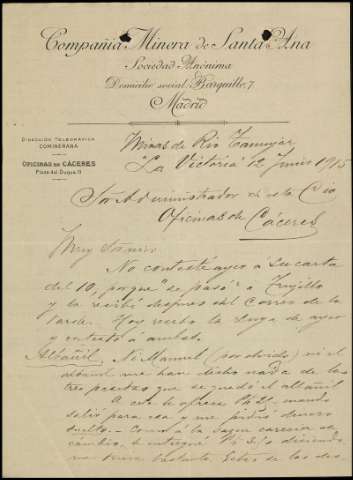 Compañia Minera de Santa Ana
Sociedad Anónima
Domicilio social: Barquillo, 7
Madrid
DIRECCIÓN TELEGRÁFICA
COMINERANA
OFICINAS DE CÁCERES
Plaza del Duque, 11
Minas de Rio Tamujar
"La Victoria" 12 Junio 1915
Sr. Administrador de la Cia
Oficinas de Cáceres
Muy Sr. mio
No contesté ayer á su carta
del 10, porque se pasó á Trujillo
y la recibí despues del Correo de la
tarde. Hoy recibo la suya de ayer
y contesto á ambas.
Albañil. Ni Manuel (por olvido) ni el
albañil me han dicho nada de las
tres pesetas que se quedó el albañil
A este le ofrecí cuando
salió para esa y me pidió dinero
suelto. Como á la sazon carecia de
cambio, le entregué diciendo